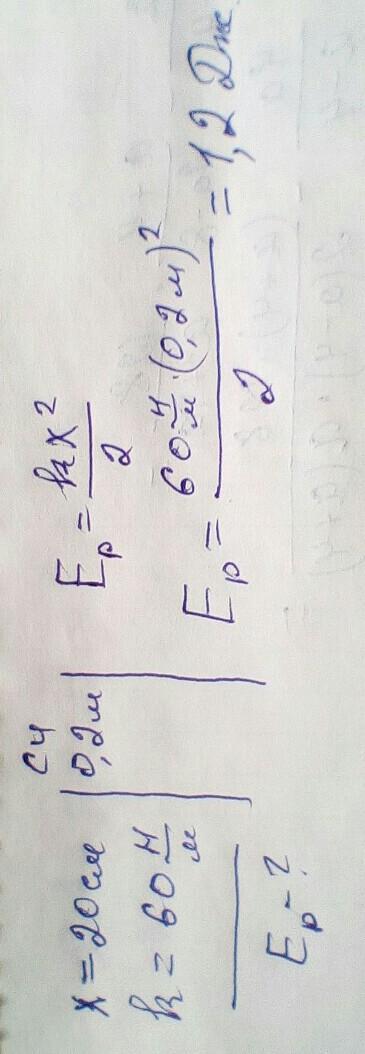 СИ
x = 20 см | 0,2 м
k = 60 Н/м
Eр - ?
Eр = kx²/2
Eр = 60 Н/м · (0,2 м)²/2 = 1,2 Дж